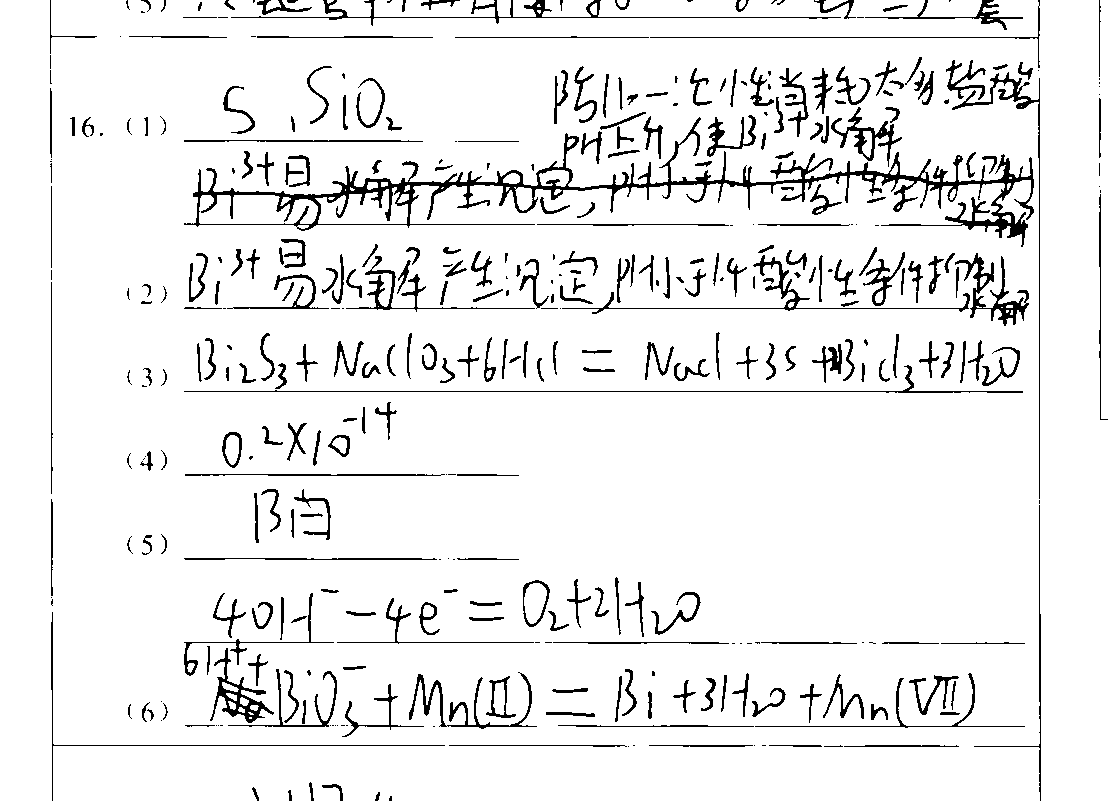 (5)
16. (1) S、SiO₂
防止一次性消耗太多盐酸
pH上升,使Bi³⁺水解
Bi³⁺易水解产生沉淀,pH小于1.4酸性条件抑制水解
(2) Bi³⁺易水解产生沉淀,pH小于1.4酸性条件抑制水解
(3) Bi₂S₃+NaClO₃+6HCl=NaCl+3S+BiCl₃+3H₂O
(4) 0.2×10⁻¹⁴
(5) 阴
4OH⁻-4e⁻=O₂+2H₂O
(6) 6H⁺+BiO₃⁻+Mn(Ⅱ)=Bi+3H₂O+Mn(Ⅶ)